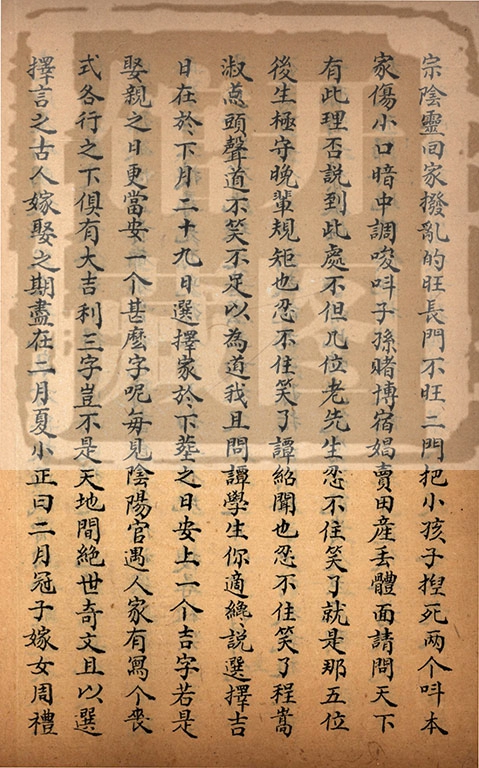 宗陰靈回家撥亂的旺長門不旺二門把小孩子揑死两个呌本
家傷小口暗中調唆呌子孫賭博宿娼賣田產丢體面請問天下
有此理否説到此處不但几位老先生忍不住笑了就是那五位
後生極守晚輩規矩也忍不住笑了譚紹聞也忍不住笑了程嵩
淑点頭聲道不笑不足以為道我且問譚學生你適纔説選擇吉
日在於下月二十九日選擇家於下塟之日安上一个吉字若是
娶親之日更當安一个甚麽字呢每見陰陽官遇人家有寫个喪
式各行之下俱有大吉利三字豈不是天地間絶世竒文且以選
擇言之古人嫁娶之期盡在二月夏小正曰二月冠子嫁女周禮